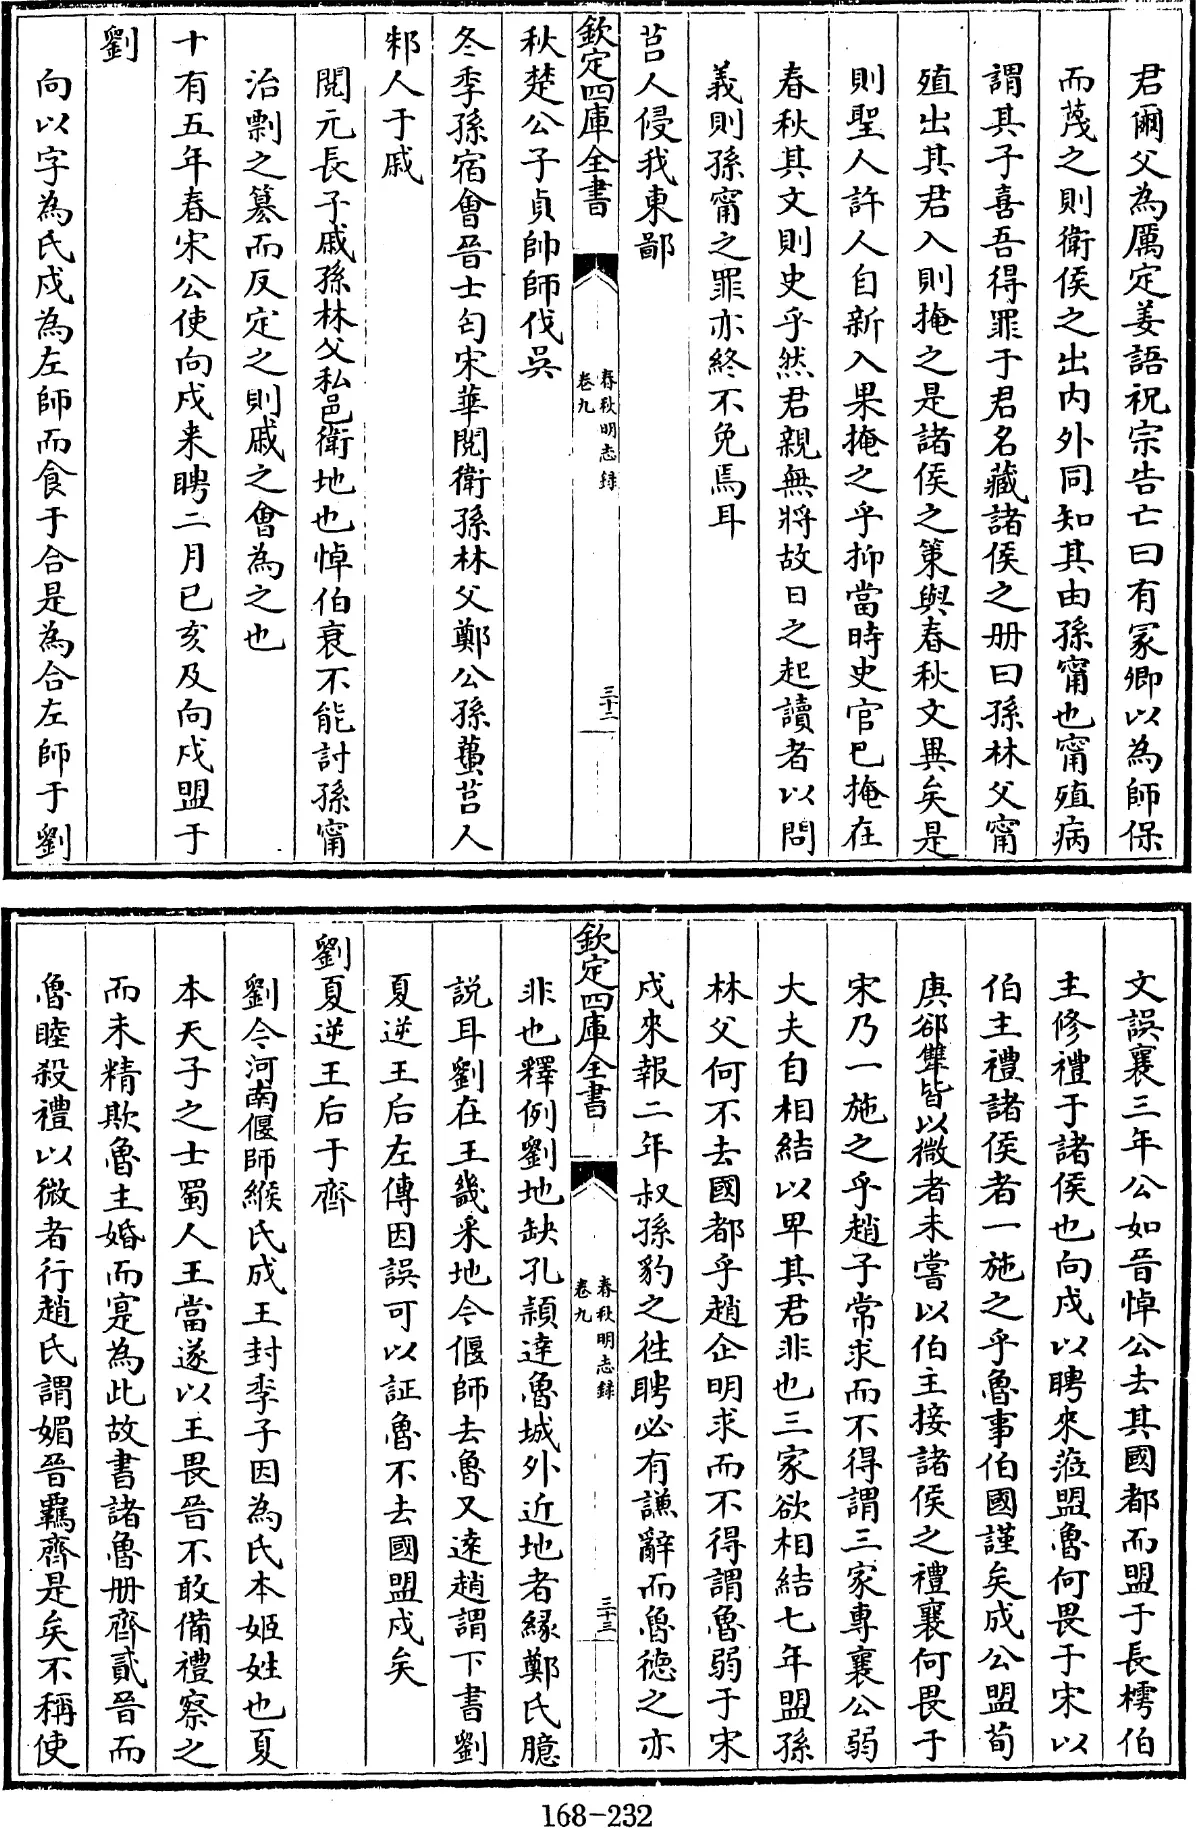 君爾父為厲定姜語祝宗告亡曰有冡卿以為師保
而蔑之則衛侯之出内外同知其由孫甯也甯殖病
謂其子喜吾得罪于君名藏諸侯之册曰孫林父甯
殖出其君入則掩之是諸侯之策與春秋文異矣是
則聖人許人自新入果掩之乎抑當時史官已掩在
春秋其文則史乎然君親無將故日之起讀者以問
義則孫甯之罪亦終不免焉耳
莒人侵我東鄙
欽定四庫全書
春秋明志録
卷九
三十二
秋楚公子貞帥師伐吳
冬季孫宿會晉士匄宋華閲衛孫林父鄭公孫蠆莒人
邾人于戚
閲元長子戚孫林父私邑衛地也悼伯衰不能討孫甯
治剽之簒而反定之則戚之會為之也
十有五年春宋公使向戌来聘二月已亥及向戌盟于
劉
向以字為氏戌為左師而食于合是為合左師于劉
文誤襄三年公如晉悼公去其國都而盟于長樗伯
主修禮于諸侯也向戌以聘來涖盟魯何畏于宋以
伯主禮諸侯者一施之乎魯事伯國謹矣成公盟荀
庚郤犨皆以微者未嘗以伯主接諸侯之禮襄何畏于
宋乃一施之乎趙子常求而不得謂三家專襄公弱
大夫自相結以卑其君非也三家欲相結七年盟孫
林父何不去國都乎趙企明求而不得謂魯弱于宋
戌來報二年叔孫豹之徃聘必有謙辭而魯德之亦
欽定四庫全書
春秋明志録
卷九
三十三
非也釋例劉地缺孔頴達魯城外近地者緣鄭氏臆
説耳劉在王畿釆地今偃師去魯又逺趙謂下書劉
夏逆王后左傳因誤可以証魯不去國盟戌矣
劉夏逆王后于齊
劉今河南偃師緱氏成王封季子因為氏本姬姓也夏
本天子之士蜀人王當遂以王畏晉不敢備禮察之
而未精欺魯主婚而寔為此故書諸魯册齊貳晉而
魯睦殺禮以微者行趙氏謂媚晉羈齊是矣不稱使
168-232